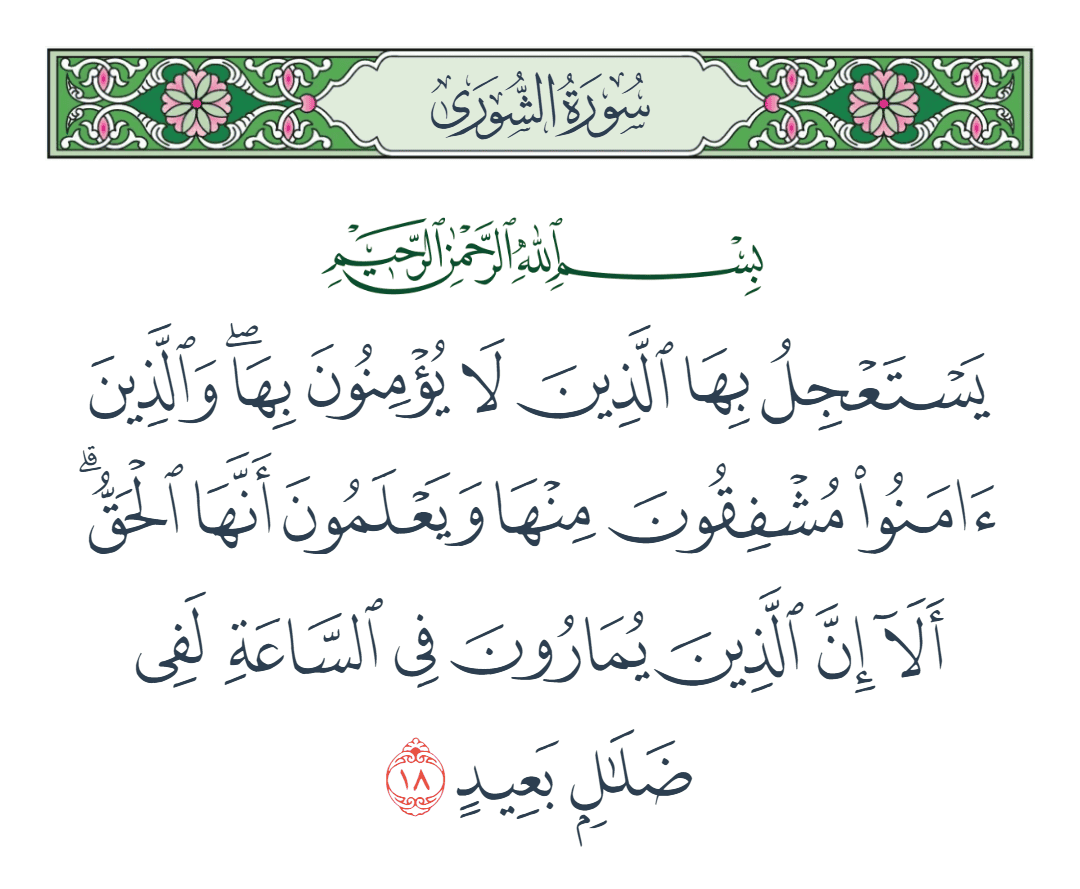 سُورَةُ الشُّورَىٰ
بِسْمِ ٱللَّهِ ٱلرَّحْمَٰنِ ٱلرَّحِيمِ
يَسْتَعْجِلُ بِهَا ٱلَّذِينَ لَا يُؤْمِنُونَ بِهَا ۖ وَٱلَّذِينَ
ءَامَنُوا۟ مُشْفِقُونَ مِنْهَا وَيَعْلَمُونَ أَنَّهَا ٱلْحَقُّ ۗ
أَلَآ إِنَّ ٱلَّذِينَ يُمَارُونَ فِى ٱلسَّاعَةِ لَفِى
ضَلَٰلٍۭ بَعِيدٍ ١٨